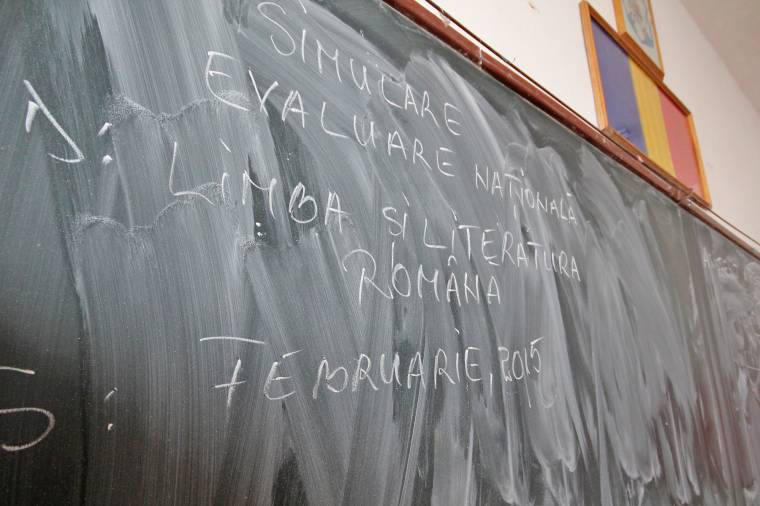 SIMULARE
EVALUARE NAȚIONALĂ
Î: LIMBA ȘI LITERATURA
ROMÂNA
S: FEBRUARIE, 2015